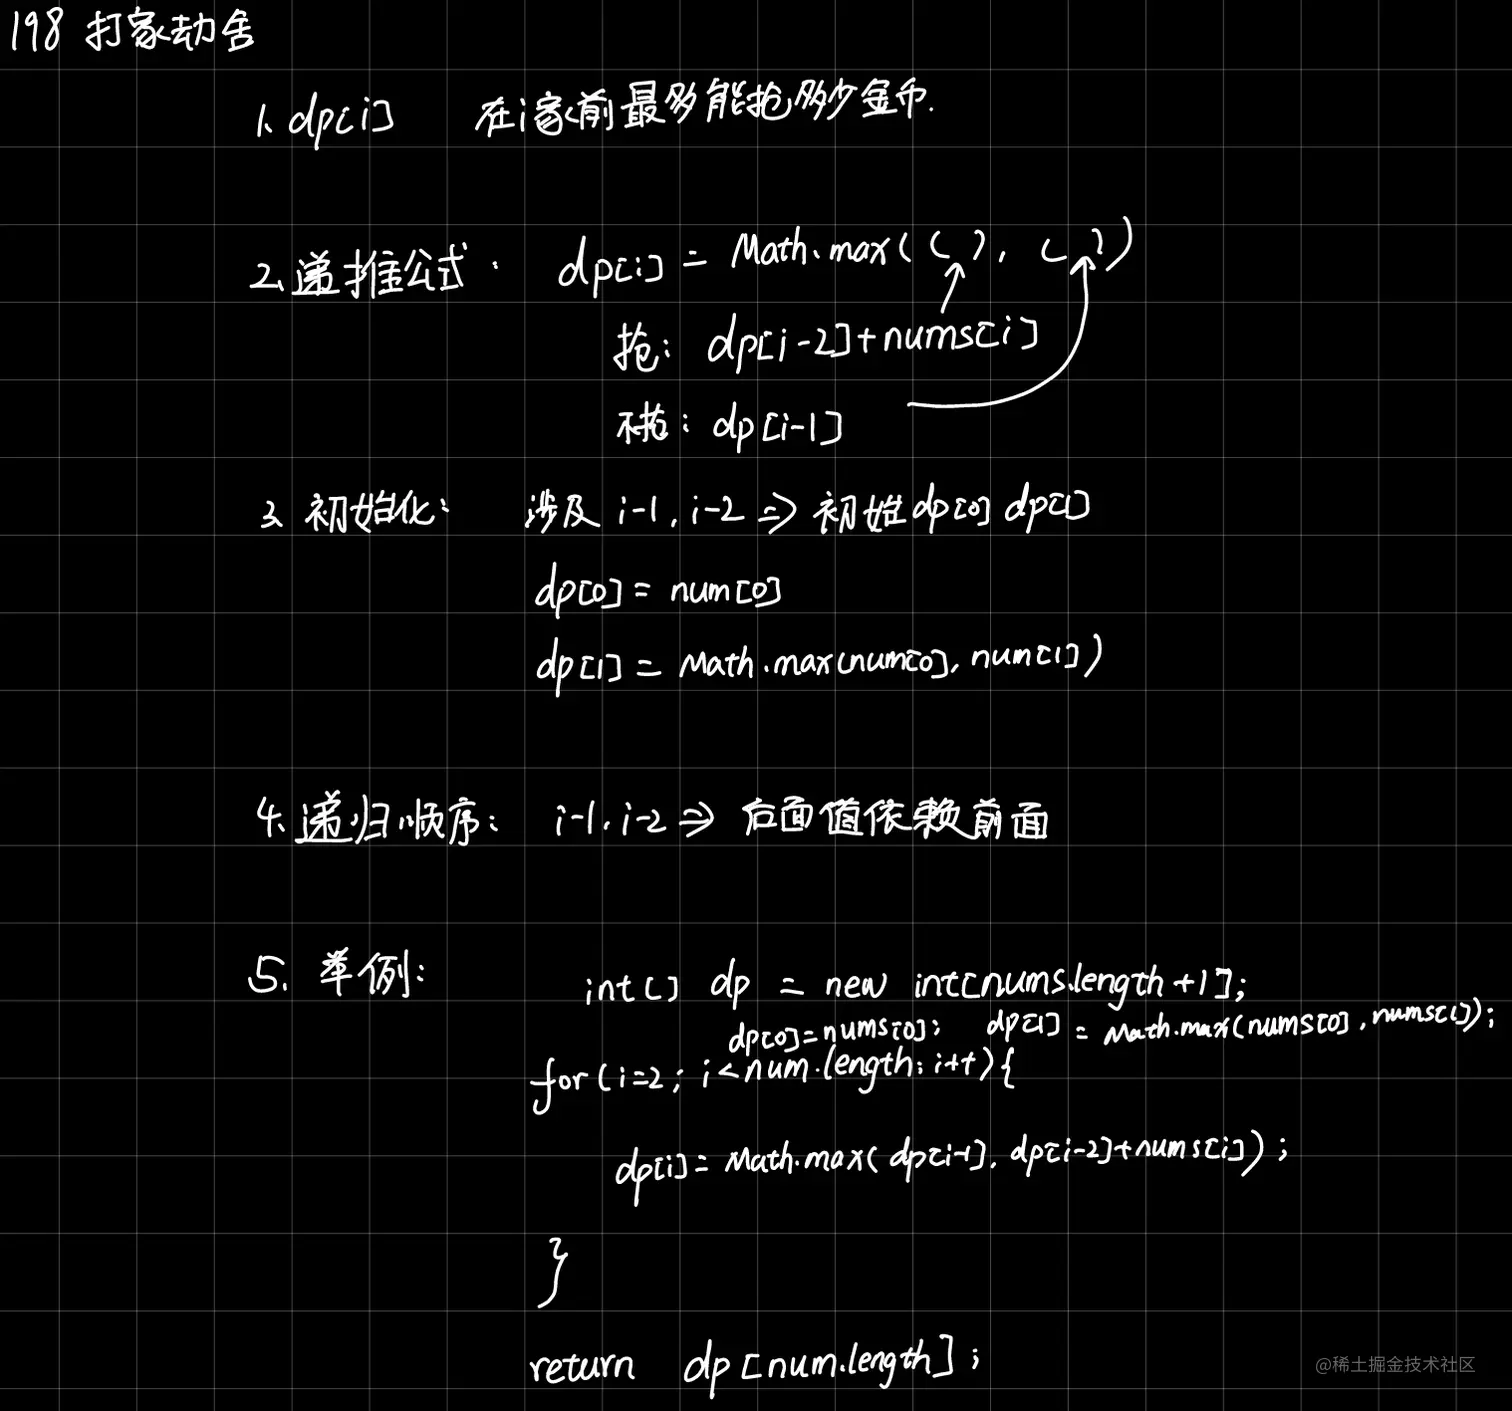 198 打家劫舍
1. dp[i] 在i家前最多能抢多少金币.
2. 递推公式: dp[i] = Math.max( ( ), ( ) )
抢: dp[i-2]+nums[i]
不抢: dp[i-1]
3. 初始化: 涉及 i-1, i-2 => 初始dp[0] dp[1]
dp[0] = num[0]
dp[1] = Math.max(num[0], num[1])
4. 递归顺序: i-1, i-2 => 后面值依赖前面
5. 举例: int[] dp = new int[nums.length+1];
dp[0]=nums[0]; dp[1] = Math.max(nums[0], nums[1]);
for(i=2; i<num.length; i++){
dp[i]=Math.max( dp[i-1], dp[i-2]+nums[i]);
}
return dp[num.length];
@稀土掘金技术社区